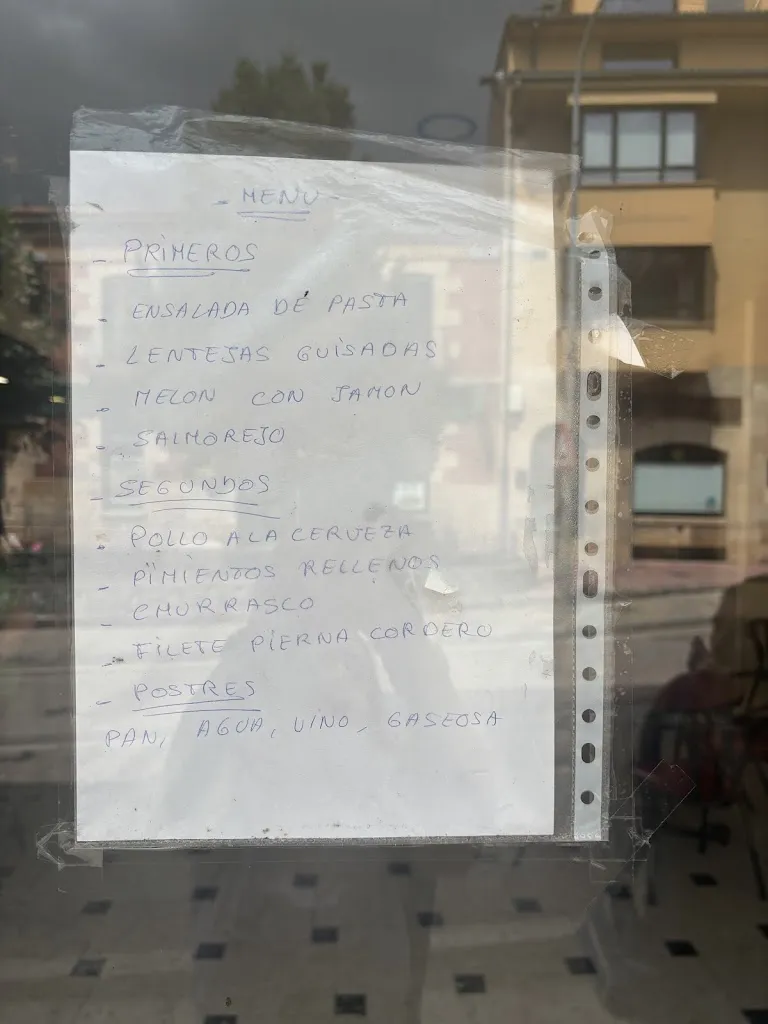 - MENU -
- PRIMEROS
- ENSALADA DE PASTA
- LENTEJAS GUISADAS
- MELON CON JAMON
- SALMOREJO
- SEGUNDOS
- POLLO A LA CERVEZA
- PIMIENTOS RELLENOS
- CHURRASCO
- FILETE PIERNA CORDERO
- POSTRES
PAN, AGUA, VINO, GASEOSA